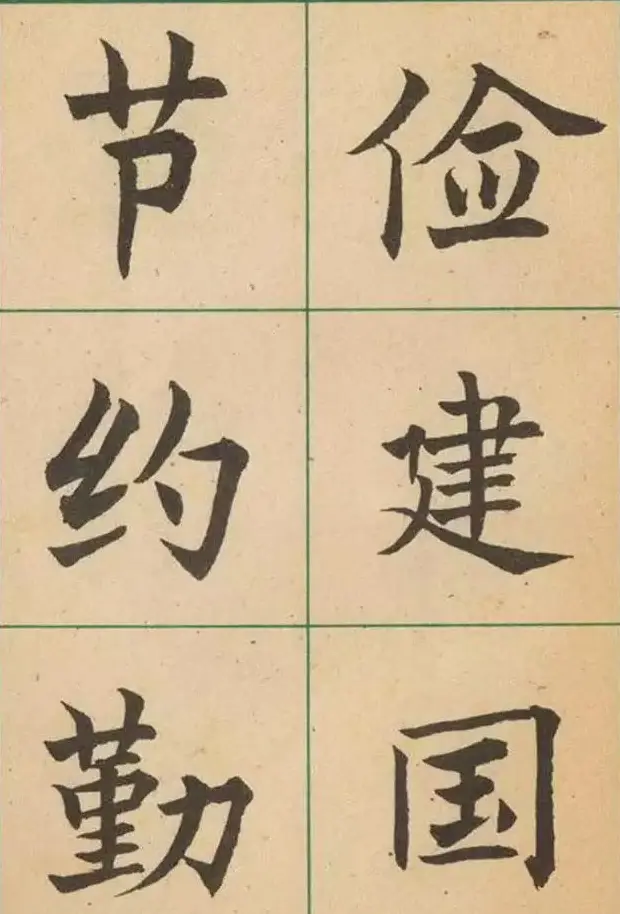 节约勤
俭建国